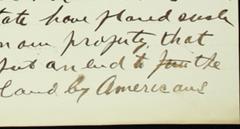 tate have placed such
n our property, that
put an end to from the
land by Americans